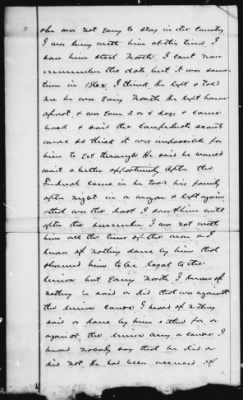 he was not going to stay in this country
I was living with him at this time I
saw him start North I cant now
remember the date but it was some
time in 1862 I think he left & told
me he was going North He left home
afoot & was gone 3 or 4 days & came
back & said the Confederate scouts
were so thick it was impossible for
him to get through He said he would
wait a better opportunity After the
Federals came in he took his family
after night in a wagon & left again
that was the last I saw of him until
after the surrender I was not with
him all the time of the war and
know of nothing done by him that
showed him to be loyal to the
Union but going North I know of
nothing he said or did that was against
the Union cause I know of nothing
said or done by him either for or
against the Union army or cause I
heard nobody say that he did or
did not. He had been accused of